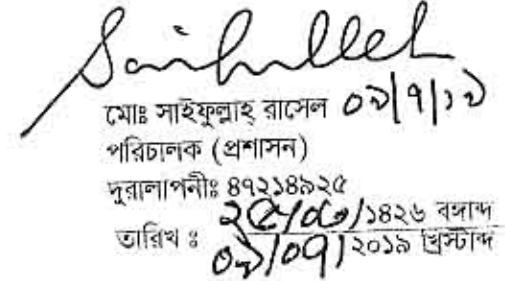 Saifullah
মোঃ সাইফুল্লাহ্ রাসেল ০৯/৭/১৯
পরিচালক (প্রশাসন)
দুরালাপনীঃ ৪৭২১৪৯২৫
তারিখ ঃ ২৫/০৩/১৪২৬ বঙ্গাব্দ
০৯/০৭/২০১৯ খ্রিস্টাব্দ